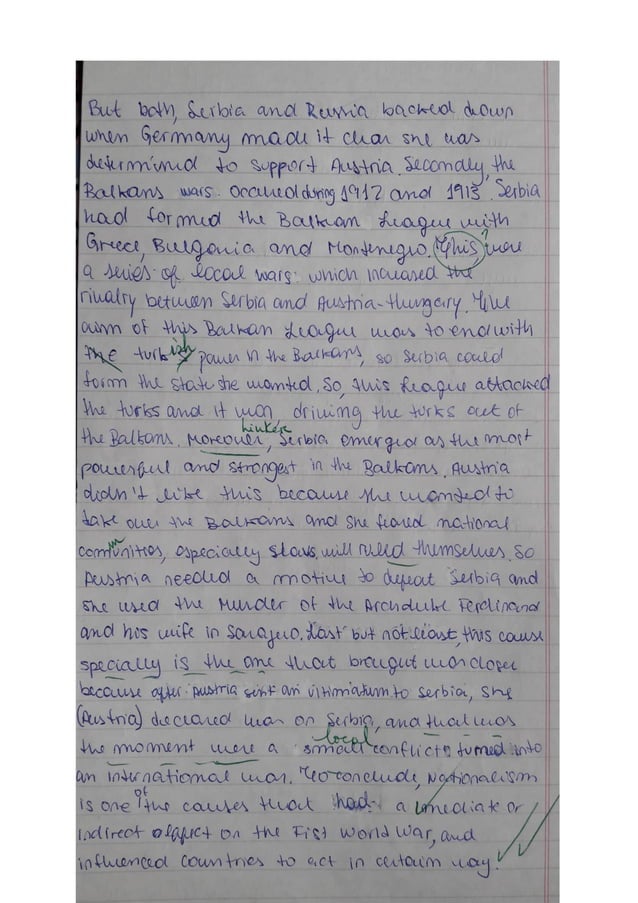 But both, Serbia and Russia backed down
when Germany made it clear she was
determined to support Austria. Secondly, the
Balkans wars. occured during 1912 and 1913. Serbia
had formed the Balkan League with
Greece, Bulgaria and Montenegro. This were
?
a series of local wars. which increased the
rivalry between Serbia and Austria-Hungary. The
aim of this Balkan League was to end with
the turkish power in the Balkans, so Serbia could
form the state she wanted. So, this League attacked
the turks and it won, driving the turks out of
the Balkans. Moreover, Serbia emerged as the most
powerful and strongest in the Balkans. Austria
didn't like this because she wanted to
take over the Balkans and she feared national
communities, especially slavs, will ruled themselves. So
Austria needed a motive to defeat Serbia and
she used the Murder of the Archduke Ferdinand
and his wife in Sarajevo. Last but not least, this cause
specially is the one that brought war closer
because after Austria sent an ultimatum to Serbia, she
(Austria) declared war on Serbia, and that was
local
the moment were a small conflict turned into
an international war. To conclude, Nationalism
is one of the causes that had a imediate or
indirect effect on the First World War, and
influenced countries to act in certain way.